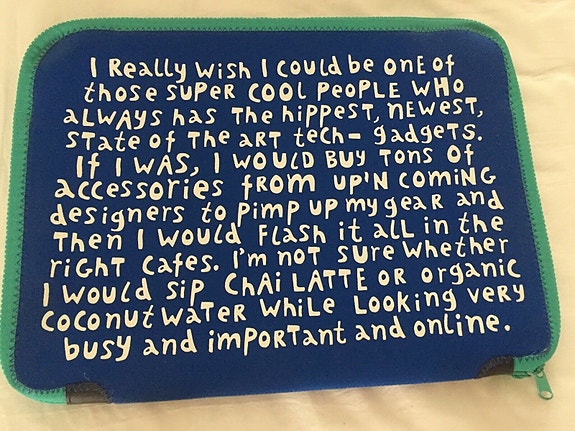 I Really wish I could be one of
those super cool people who
always has the hippest, newest,
state of the art tech- gadgets.
If I was, I would buy tons of
accessories from up'n coming
designers to pimp up my gear and
then I would flash it all in the
right cafes. I'm not sure whether
I would sip chai latte or organic
coconut water while looking very
busy and important and online.